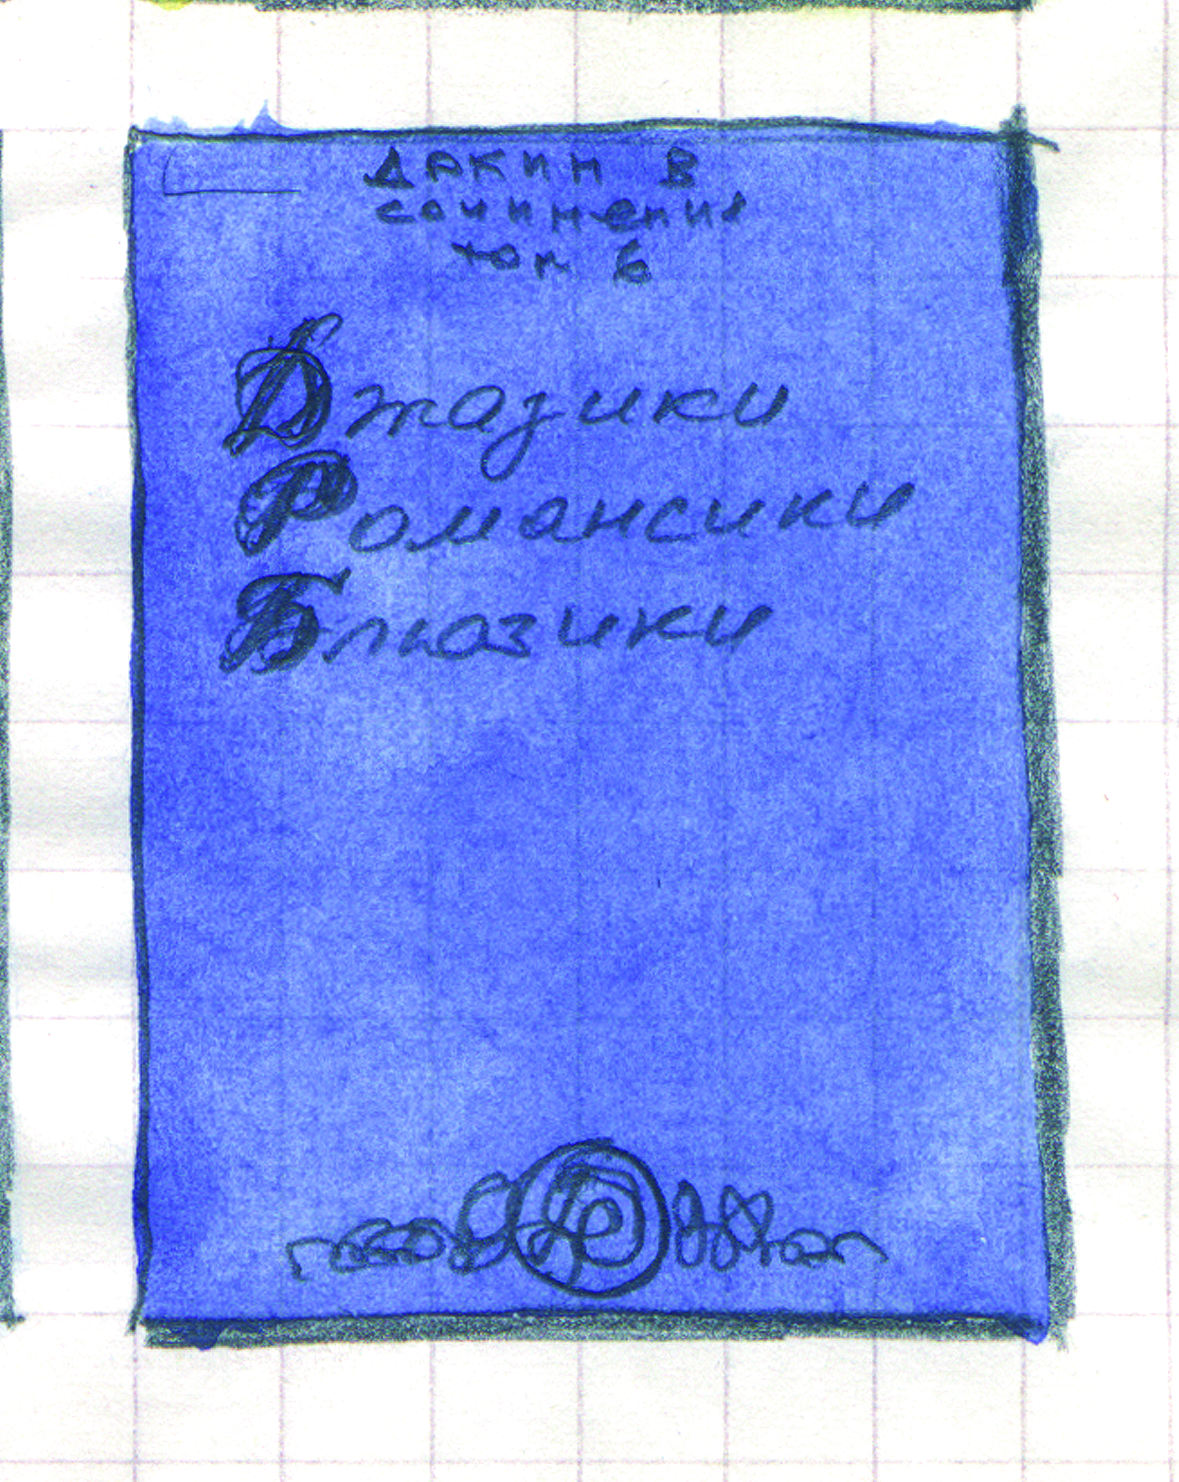 ДРКИН В
сочинения
том 6
Джазики
Романсики
Блюзики